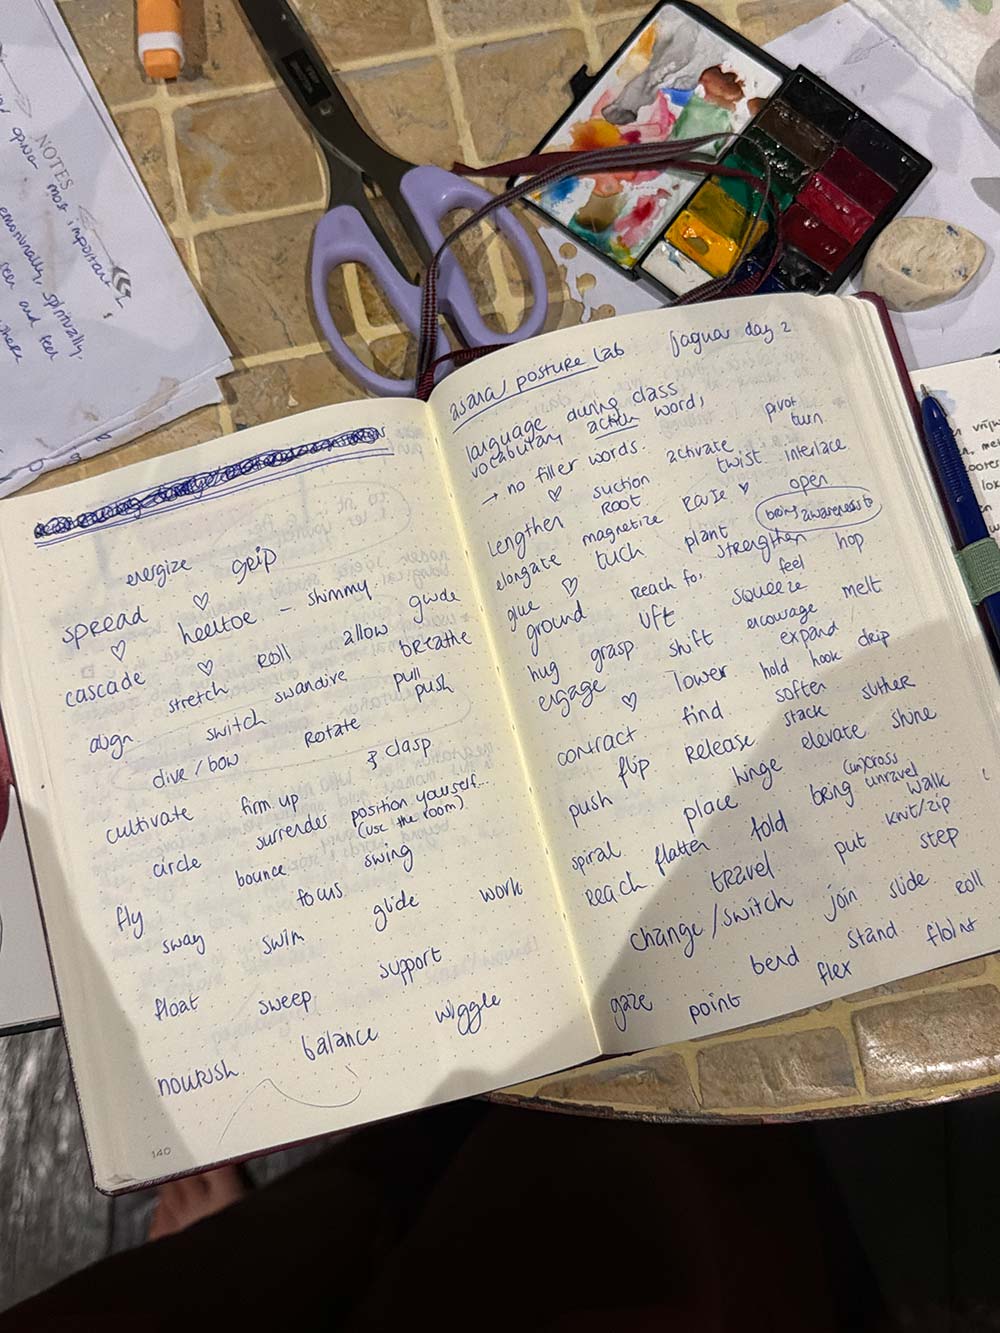 NOTES
most important
emotionally, spiritually,
and feel
energize grip
spread ♡ heeltoe - shimmy
♡ cascade ♡ roll allow guide
stretch swandive breathe
align switch pull
dive / bow rotate push
& clasp
cultivate firm up
position yourself...
circle surrender (use the room)
bounce swing
fly focus
sway swim glide work
float sweep support
nourish balance wiggle
140
asana / posture lab jaguar day 2
language during class
vocabulary action word,
→ no filler words. activate pivot
turn
♡ suction twist interlace
lengthen root raise ♡ open
elongate magnetize bring awareness to
glue ♡ tuck plant strengthen hop
ground reach for, feel
hug grasp lift squeeze melt
engage shift encourage
♡ lower expand / drip
contract find hold hook
soften suther
flip release stack
push hinge elevate shine
place (un)cross
spiral flatten bring unravel walk
reach fold knit/zip
travel put step
change/switch join slide roll
bend stand
gaze point flex